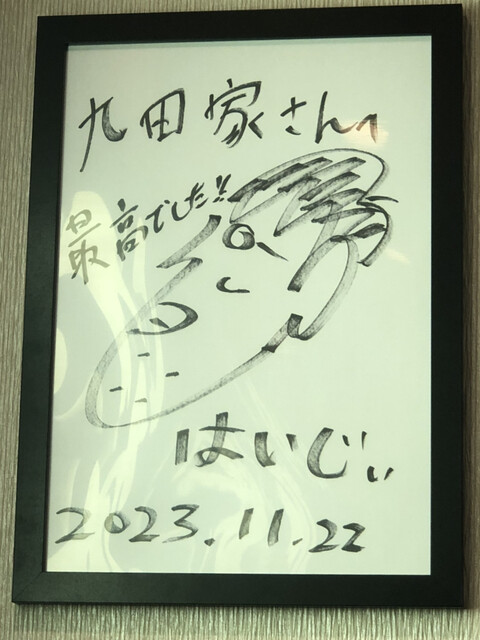 九田家さんへ
最高でした!!
はいじぃ
2023.11.22